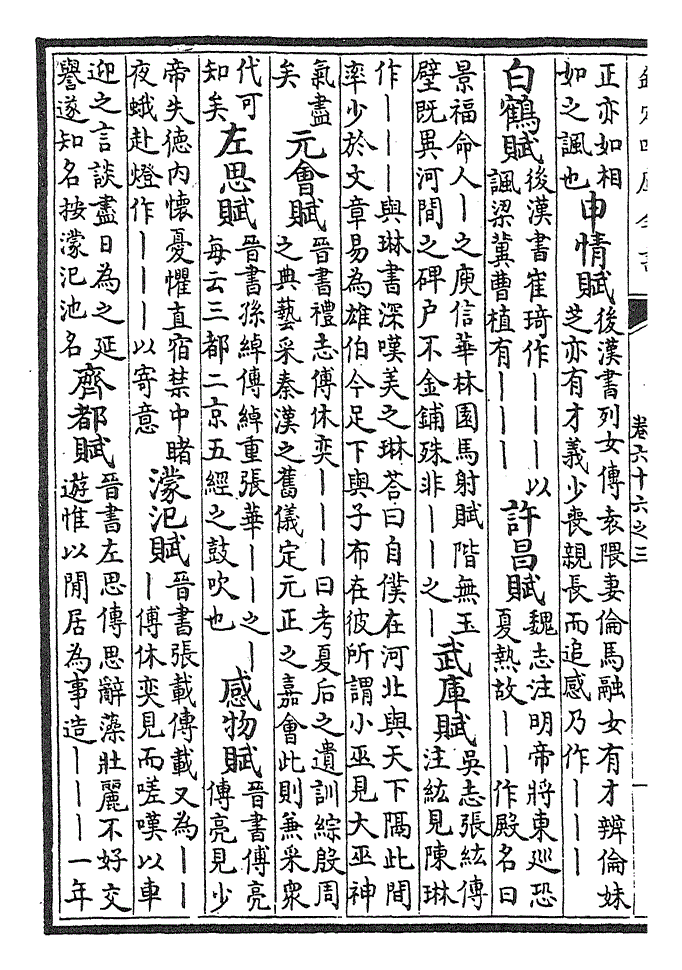 卷六十六之三
一
正亦如相
如之諷也
申情賦
後漢書列女傳袁隗妻倫馬融女有才辨倫妹
芝亦有才義少喪親長而追感乃作｜｜｜
白鶴賦
後漢書崔琦作｜｜｜以
諷梁冀曹植有｜｜｜
許昌賦
魏志注明帝將東廵恐
夏熱故｜｜作殿名曰
景福命人｜之庾信華林園馬射賦階無玉
璧既異河間之碑户不金鋪殊非｜｜之｜
武庫賦
吳志張紘傳
注紘見陳琳
作｜｜｜與琳書深嘆美之琳荅曰自僕在河北與天下隔此間
率少於文章易為雄伯今足下與子布在彼所謂小巫見大巫神
氣盡
矣
元會賦
晉書禮志傅休奕｜｜｜曰考夏后之遺訓綜殷周
之典藝采秦漢之舊儀定元正之嘉會此則兼采衆
代可
知矣
左思賦
晉書孫綽傳綽重張華｜｜之｜
每云三都二京五經之鼓吹也
感物賦
晉書傅亮
傳亮見少
帝失德内懷憂懼直宿禁中睹
夜蛾赴燈作｜｜｜以寄意
濛汜賦
晉書張載傳載又為｜｜
｜傅休奕見而嗟嘆以車
迎之言談盡日為之延
譽遂知名按濛汜池名
齊都賦
晉書左思傳思辭藻壯麗不好交
遊惟以閒居為事造｜｜｜一年